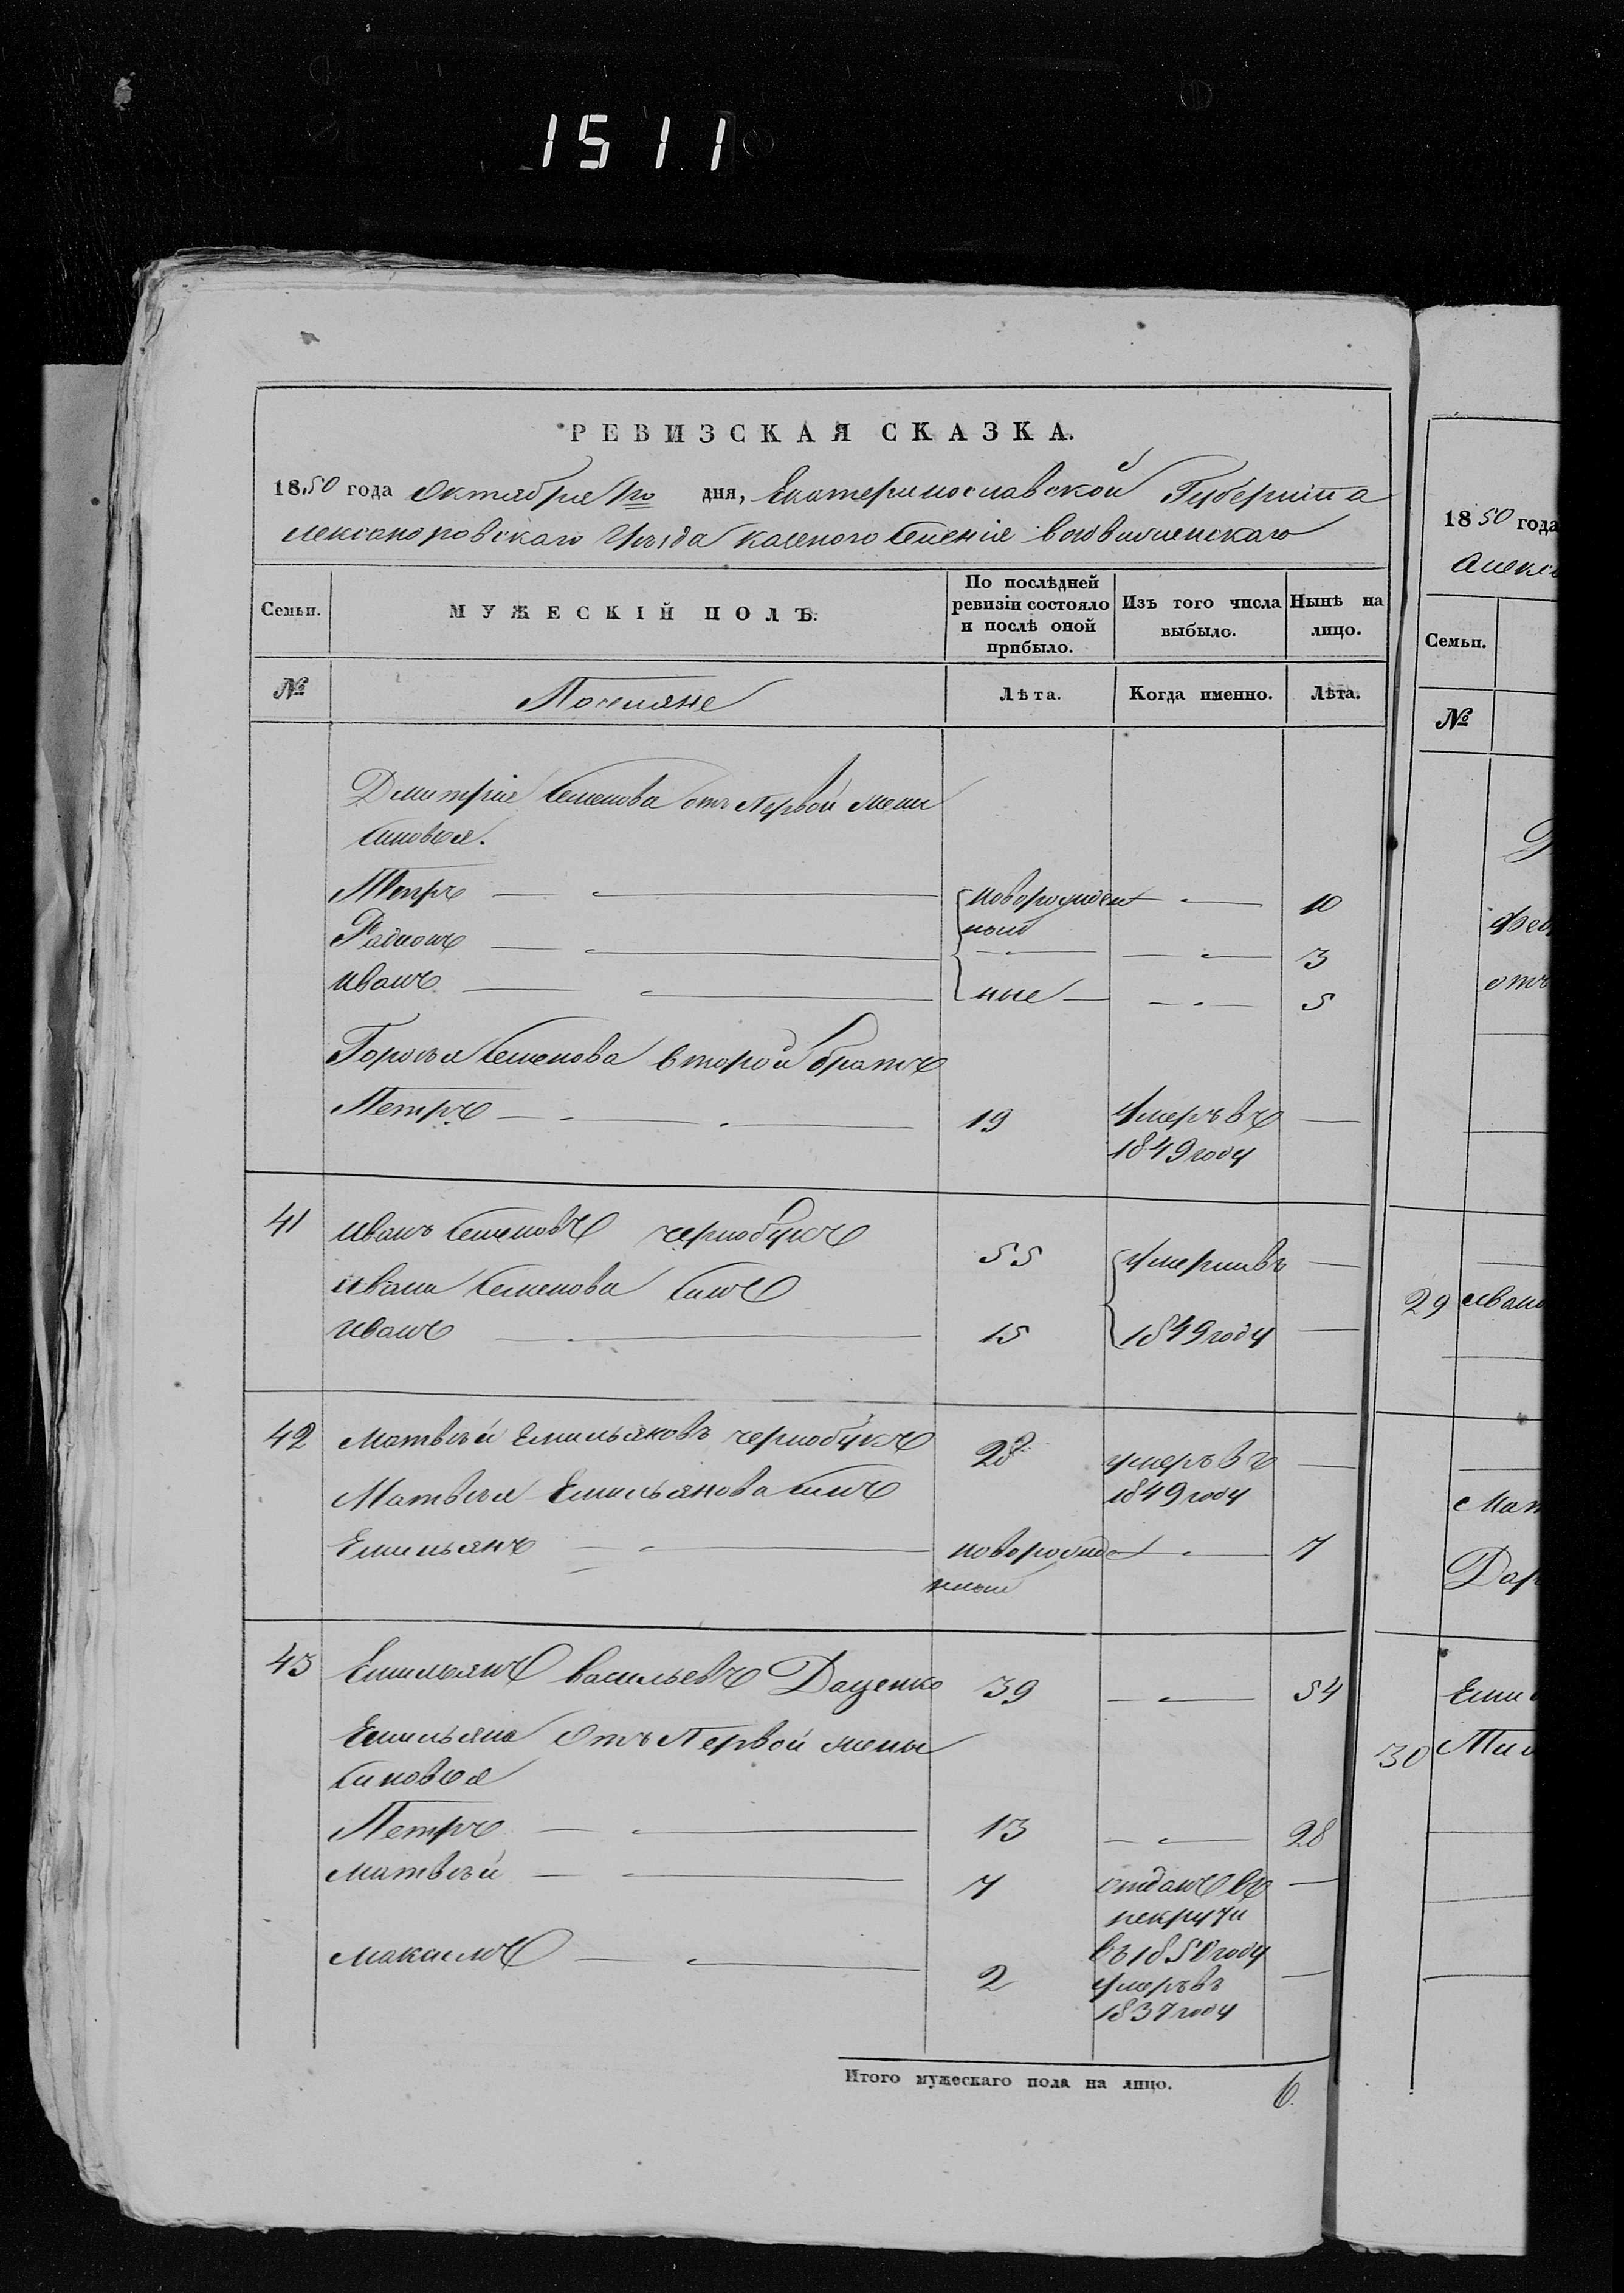 1511
РЕВИЗСКАЯ СКАЗКА.
1850 года Октября 1го дня, Екатеринославской Губерніи А
лександровскаго Уѣзда казеного Селенія
Семьи.
МУЖЕСКІЙ ПОЛЪ.
По послѣдней ревизіи состояло и послѣ оной прибыло.
Изъ того числа выбыло.
Нынѣ на лицо.
№
Поселяне
Лѣта.
Когда именно.
Лѣта.
Дмитрія Семенова отъ Первой жены
синовья.
Петръ новорожден 10
ный
Радионъ 3
Иванъ ные 5
Семенова второй братъ
Петръ 19 Умеръ въ
1849 году
41 Иванъ Семеновъ Чернобукъ 55 Умерши въ
Ивана Семенова синъ
Иванъ 15 1849 году
42 Матвѣй Емильяновъ Чернобукъ 28 умеръ въ
Матвѣя Емильянова синъ 1849 году
Емильянъ новорожде 7
нный
43 Емильянъ Васильевъ Даценко 39 54
Емильяна Отъ Первой жены
синовья
Петръ 13 28
Матвѣй 7 отданъ въ
рекруты
въ 1850 году
Максимъ 2 Умеръ въ
1837 году
Итого мужескаго пола на лицо. 6.
1850 года
Алекса
Семьи.
№
отъ
29 Иван
Мат
Дар
Еми
30